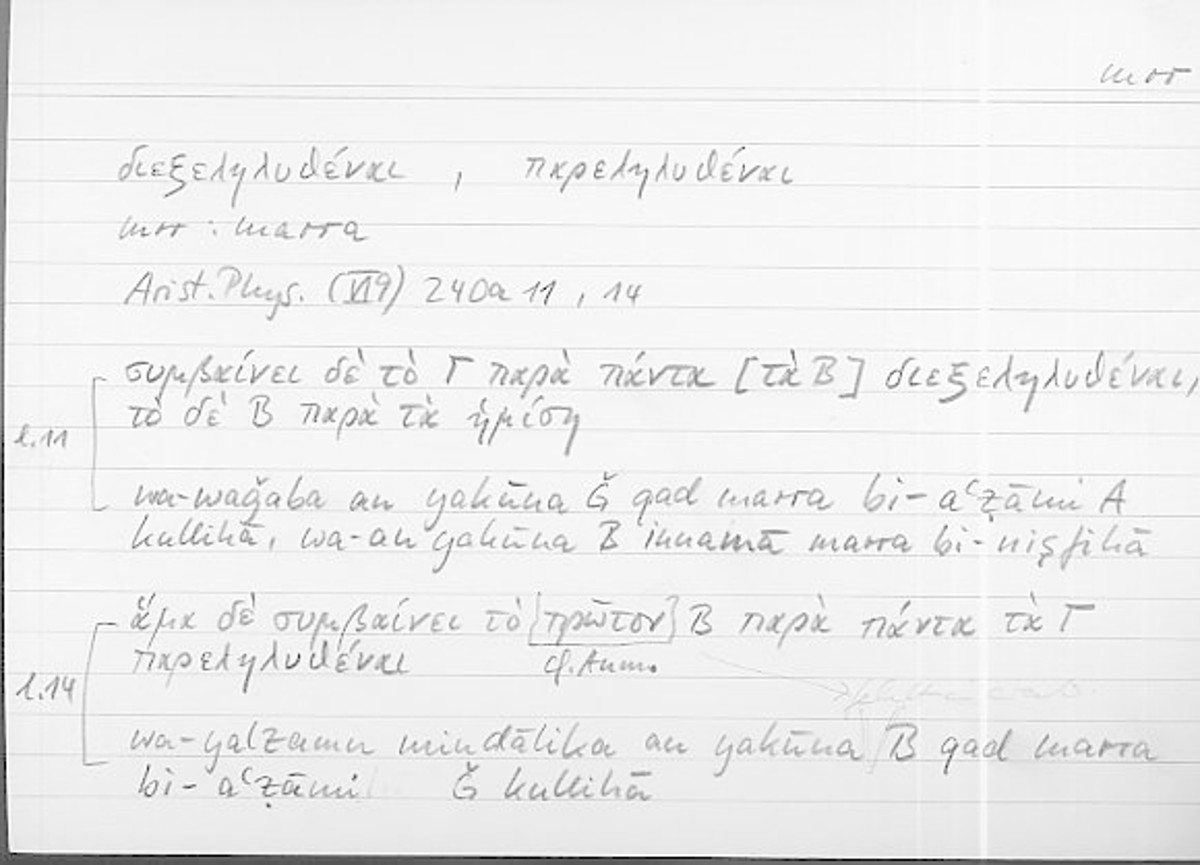 mrr
διεξεληλυθέναι , παρεληλυθέναι
mrr : marra
Arist. Phys. (VI9) 240a 11 , 14
συμβαίνει δὲ τὸ Γ παρὰ πάντα [τὰ B] διεξεληλυθέναι,
τὸ δὲ B παρὰ τὰ ἡμίση
l.11
wa-waǧaba an yakūna Ǧ qad marra bi-aʿẓāmi A
kullihā, wa-an yakūna B innamā marra bi-niṣfihā
ἅμα δὲ συμβαίνει τὸ [πρῶτον] B παρὰ πάντα τὰ Γ
παρεληλυθέναι cf. Anm.
l.14
wa-yalzamu min dālika an yakūna B qad marra
bi-aʿẓāmi Ǧ kullihā